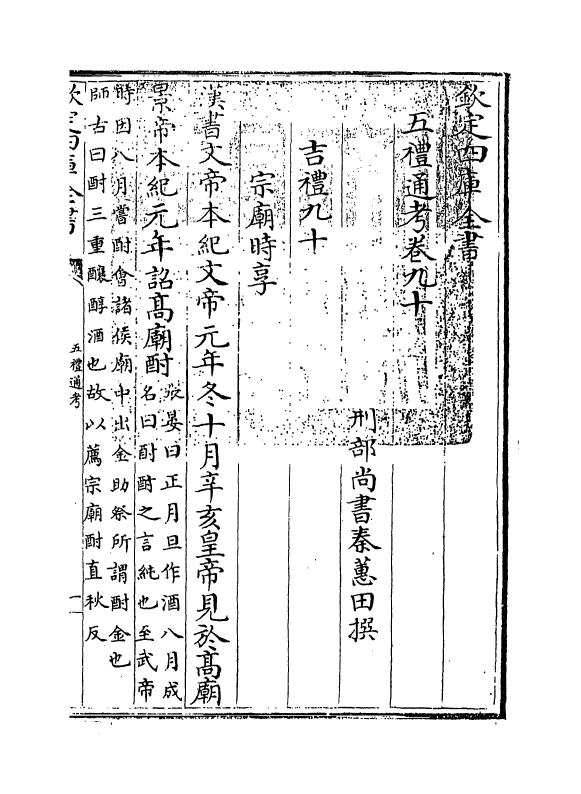 欽定四庫全書
五禮通考卷九十
刑部尚書秦蕙田撰
吉禮九十
宗廟時享
漢書文帝本紀文帝元年冬十月辛亥皇帝見於髙廟
景帝本紀元年詔髙廟酎
張晏曰正月旦作酒八月成
名曰酎酎之言純也至武帝
時因八月嘗酎會諸侯廟中出金助祭所謂酎金也
師古曰酎三重釀醇酒也故以薦宗廟酎直秋反
欽定四庫全書
五禮通考
一